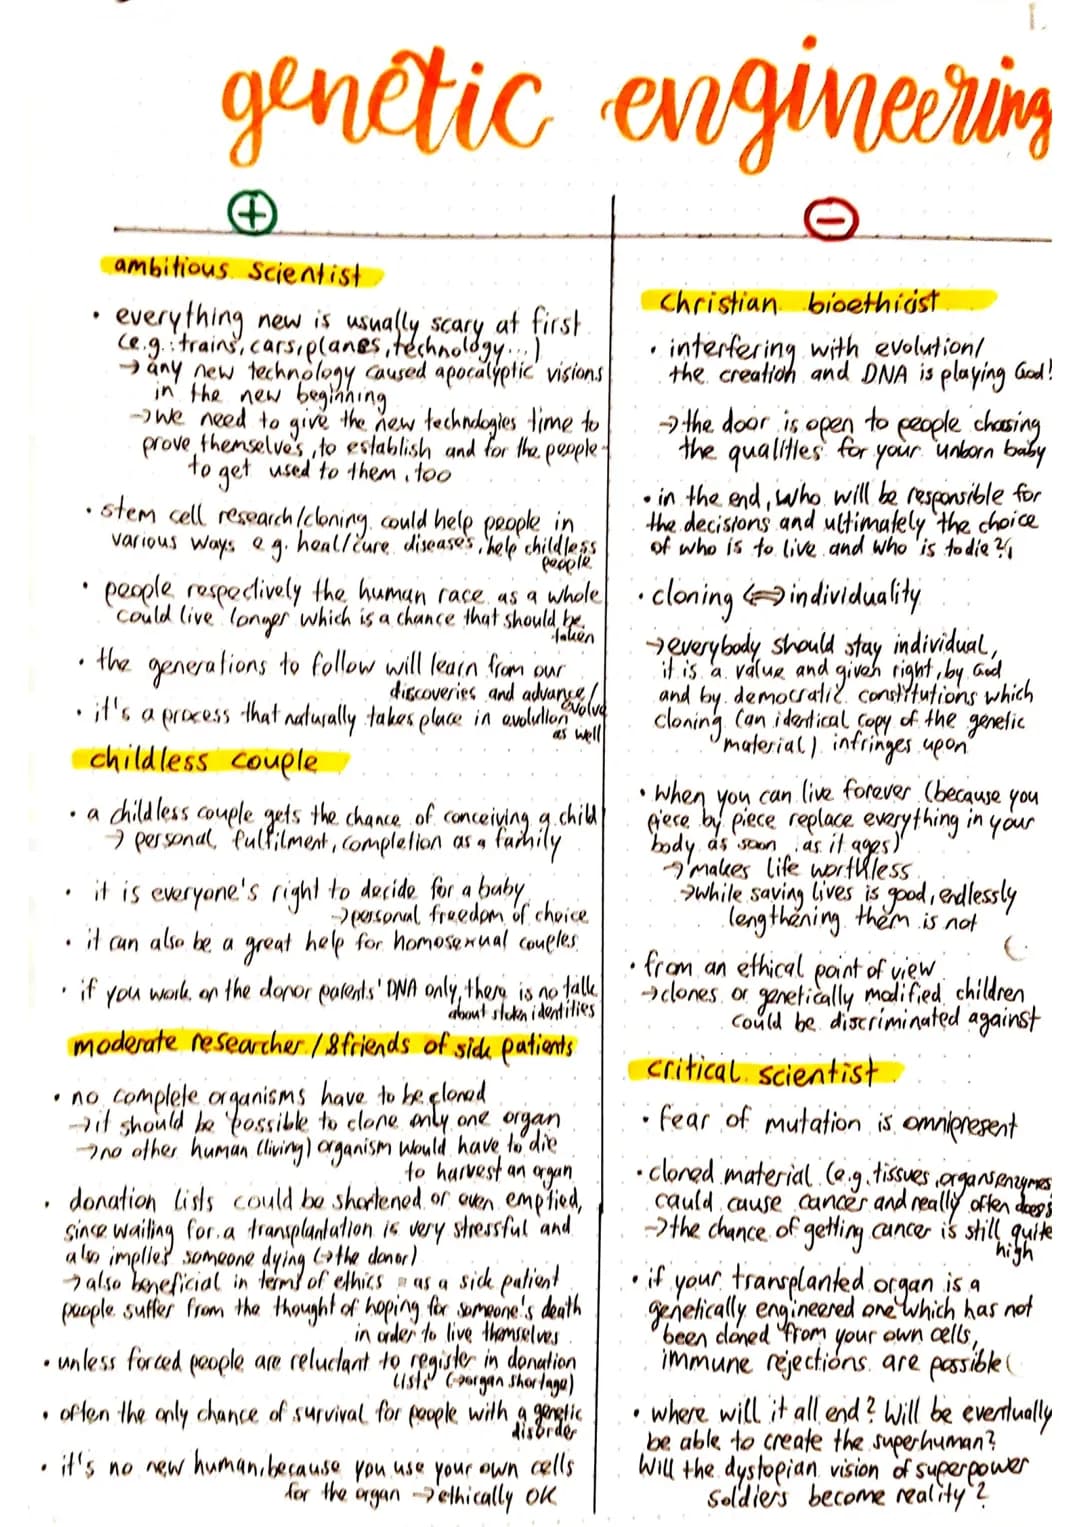 1.
genetic engineering
+
ambitious scientist
• everything new is usually scary at first
(e.g.: trains, cars, planes, technology...)
→ any new technology caused apocalyptic visions
in the new beginning
→ we need to give the new technologies time to
prove themselves, to establish and for the people
to get used to them, too
• stem cell research/cloning could help people in
various ways e.g. heal/cure diseases, help childless
people
• people respectively the human race as a whole
could live longer which is a chance that should be
taken
• the generations to follow will learn from our
discoveries and advance/
evolve
• it's a process that naturally takes place in evolution
as well
childless couple
• a childless couple gets the chance of conceiving a child
→ personal fulfilment, completion as a family
• it is everyone's right to decide for a baby
→ personal freedom of choice
• it can also be a great help for homosexual couples
• if you work on the donor parents' DNA only, there is no talk
about stolen identities
moderate researcher / &friends of sick patients
• no complete organisms have to be cloned
→ it should be possible to clone only one organ
→ no other human (living) organism would have to die
to harvest an organ
• donation lists could be shortened or even emptied,
since waiting for a transplantation is very stressful and
also implies someone dying (→ the donor)
→ also beneficial in terms of ethics as a sick patient
people suffer from the thought of hoping for someone's death
in order to live themselves
• unless forced people are reluctant to register in donation
lists (→organ shortage)
• often the only chance of survival for people with a genetic
disorder
• it's no new human, because you use your own cells
for the organ → ethically OK
−
christian bioethicist
• interfering with evolution/
the creation and DNA is playing God!
→ the door is open to people chosing
the qualities for your unborn baby
• in the end, who will be responsible for
the decisions and ultimately the choice
of who is to live and who is to die?
• cloning ⟺ individuality
→ everybody should stay individual,
it is a value and given right, by God
and by democratic constitutions which
cloning (an identical copy of the genetic
material) infringes upon
• when you can live forever (because you
piece by piece replace everything in your
body as soon as it ages)
→ makes life worthless
→ while saving lives is good, endlessly
lengthening them is not
• from an ethical point of view
→ clones or genetically modified children
could be discriminated against
critical scientist
• fear of mutation is omnipresent
• cloned material (e.g. tissues, organs, enzymes
could cause cancer and really often does
→ the chance of getting cancer is still quite
high
• if your transplanted organ is a
genetically engineered one which has not
been cloned from your own cells,
immune rejections are possible
• where will it all end? Will be eventually
be able to create the superhuman?
Will the dystopian vision of superpower
soldiers become reality?